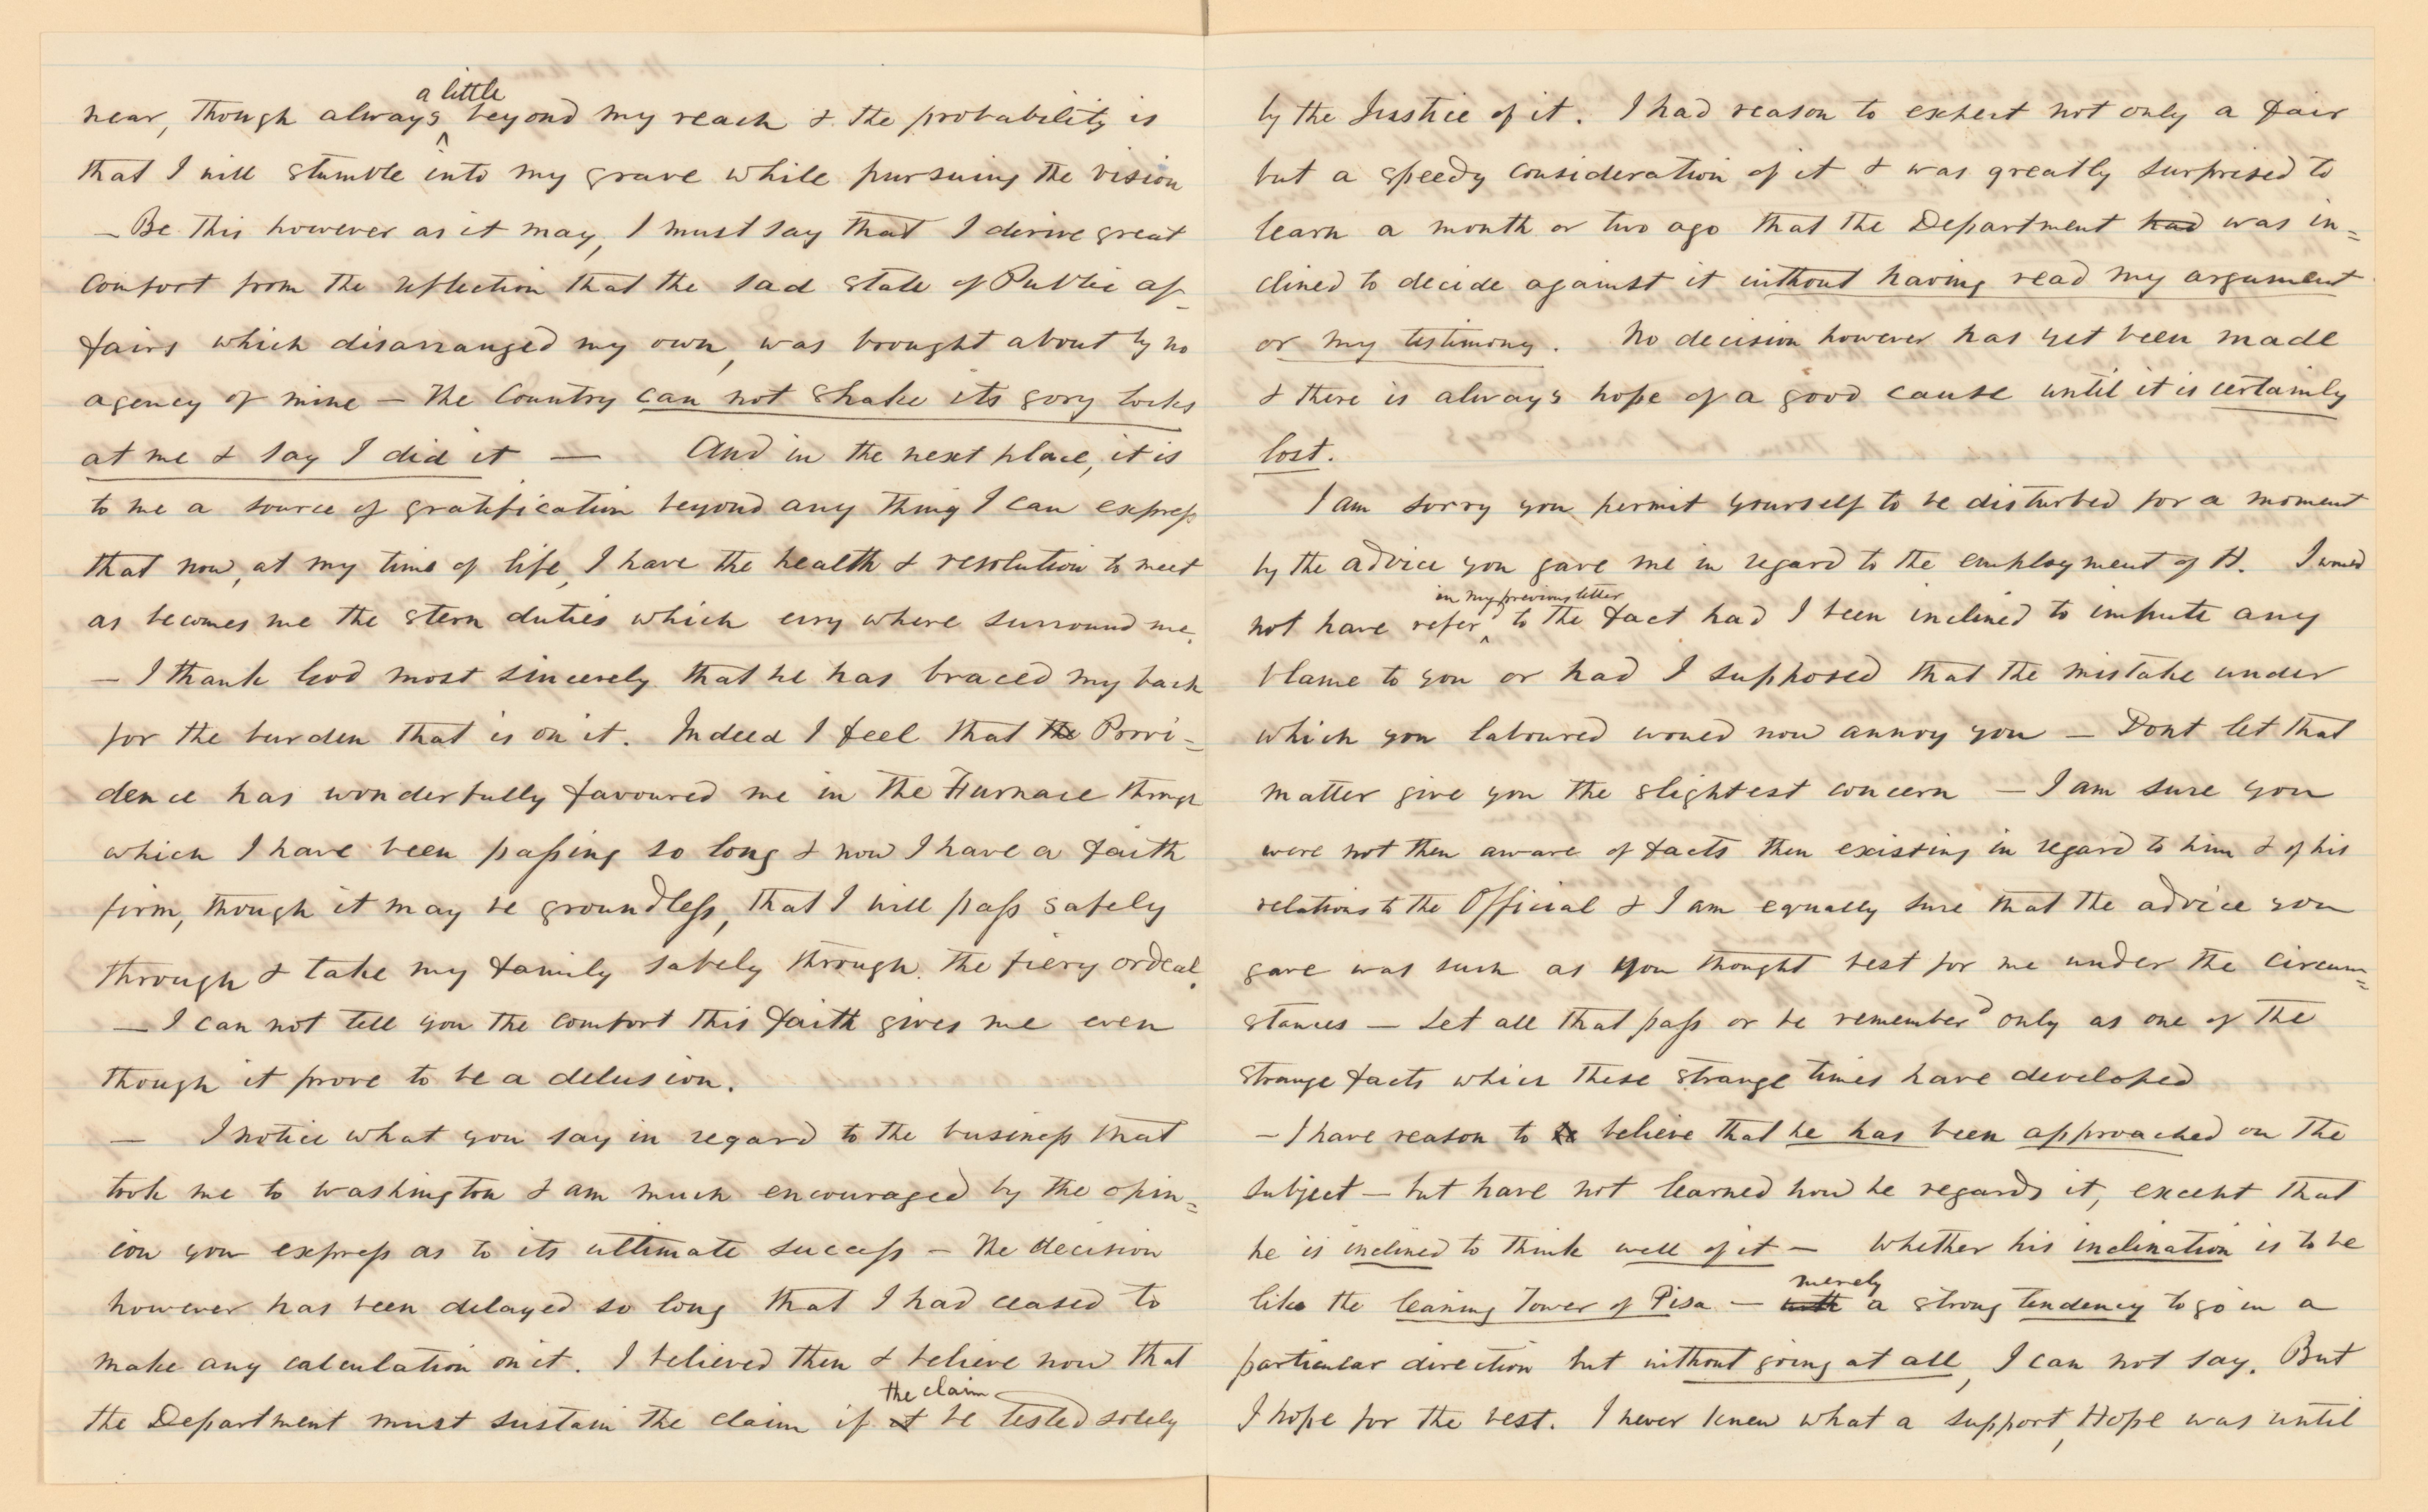 near, though always a little beyond my reach & the probability is
that I will stumble into my grave while pursuing the vision
— Be this however as it may, I must say that I derive great
comfort from the reflection that the sad state of Public af-
fairs which disarranged my own, was brought about by no
agency of mine — The Country can not shake its gory locks
at me & say I did it — And in the next place, it is
to me a source of gratification beyond any thing I can express
that now, at my time of life, I have the health & resolution to meet
as becomes me the stern duties which every where surround me.
— I thank God most sincerely that he has braced my back
for the burden that is on it. Indeed I feel that the Provi-
dence has wonderfully favoured me in the Furnace through
which I have been passing so long & now I have a faith
firm, though it may be groundless, that I will pass safely
through & take my family safely through the fiery ordeal.
— I can not tell you the comfort this faith gives me even
though it prove to be a delusion.
— I notice what you say in regard to the business that
took me to Washington & am much encouraged by the opin=
ion you express as to its ultimate success — The decision
however has been delayed so long that I had ceased to
make any calculation on it. I believed then & believe now that
the Department must sustain the claim if it the claim be tested solely
by the Justice of it. I had reason to expect not only a fair
but a speedy consideration of it & was greatly surprised to
learn a month or two ago that the Department had was in=
clined to decide against it without having read my argument
or my testimony. No decision however has yet been made
& there is always hope of a good cause until it is certainly
lost.
I am sorry you permit yourself to be disturbed for a moment
by the advice you gave me in regard to the employment of H. I would
not have refer'd in my previous letter to the fact had I been inclined to impute any
blame to you or had I supposed that the mistake under
which you laboured would now annoy you — Dont let that
matter give you the slightest concern — I am sure you
were not then aware of facts then existing in regard to him & of his
relations to the Official & I am equally sure that the advice you
gave was such as you thought best for me under the circum=
stances — Let all that pass or be remember'd only as one of the
strange facts which these strange times have developed
— I have reason to believe that he has been approached on the
subject — but have not learned how he regards it, except that
he is inclined to think well of it — Whether his inclination is to be
like the leaning Tower of Pisa — with merely a strong tendency to go in a
particular direction but without going at all, I can not say. But
I hope for the best. I never knew what a support, Hope was until